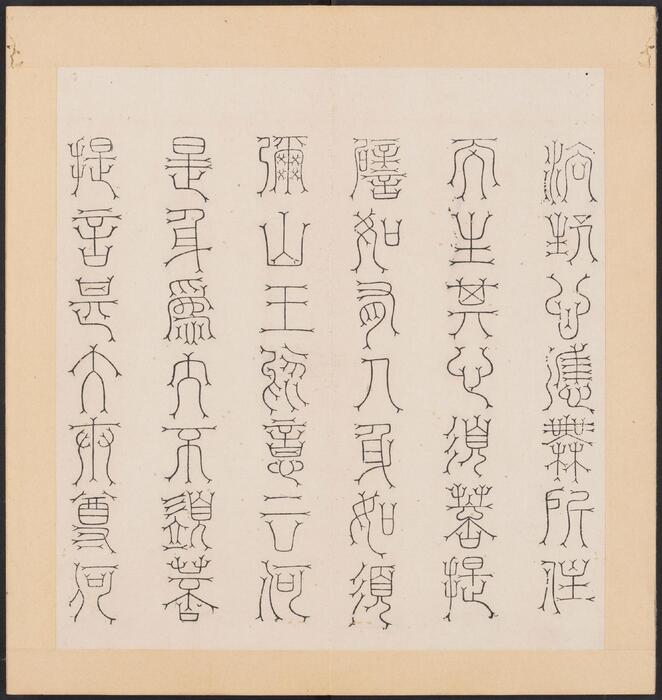 法生心應無所住
而生其心須菩提
譬如有人身如須
彌山王於意云何
是身為大不須菩
提言甚大世尊何